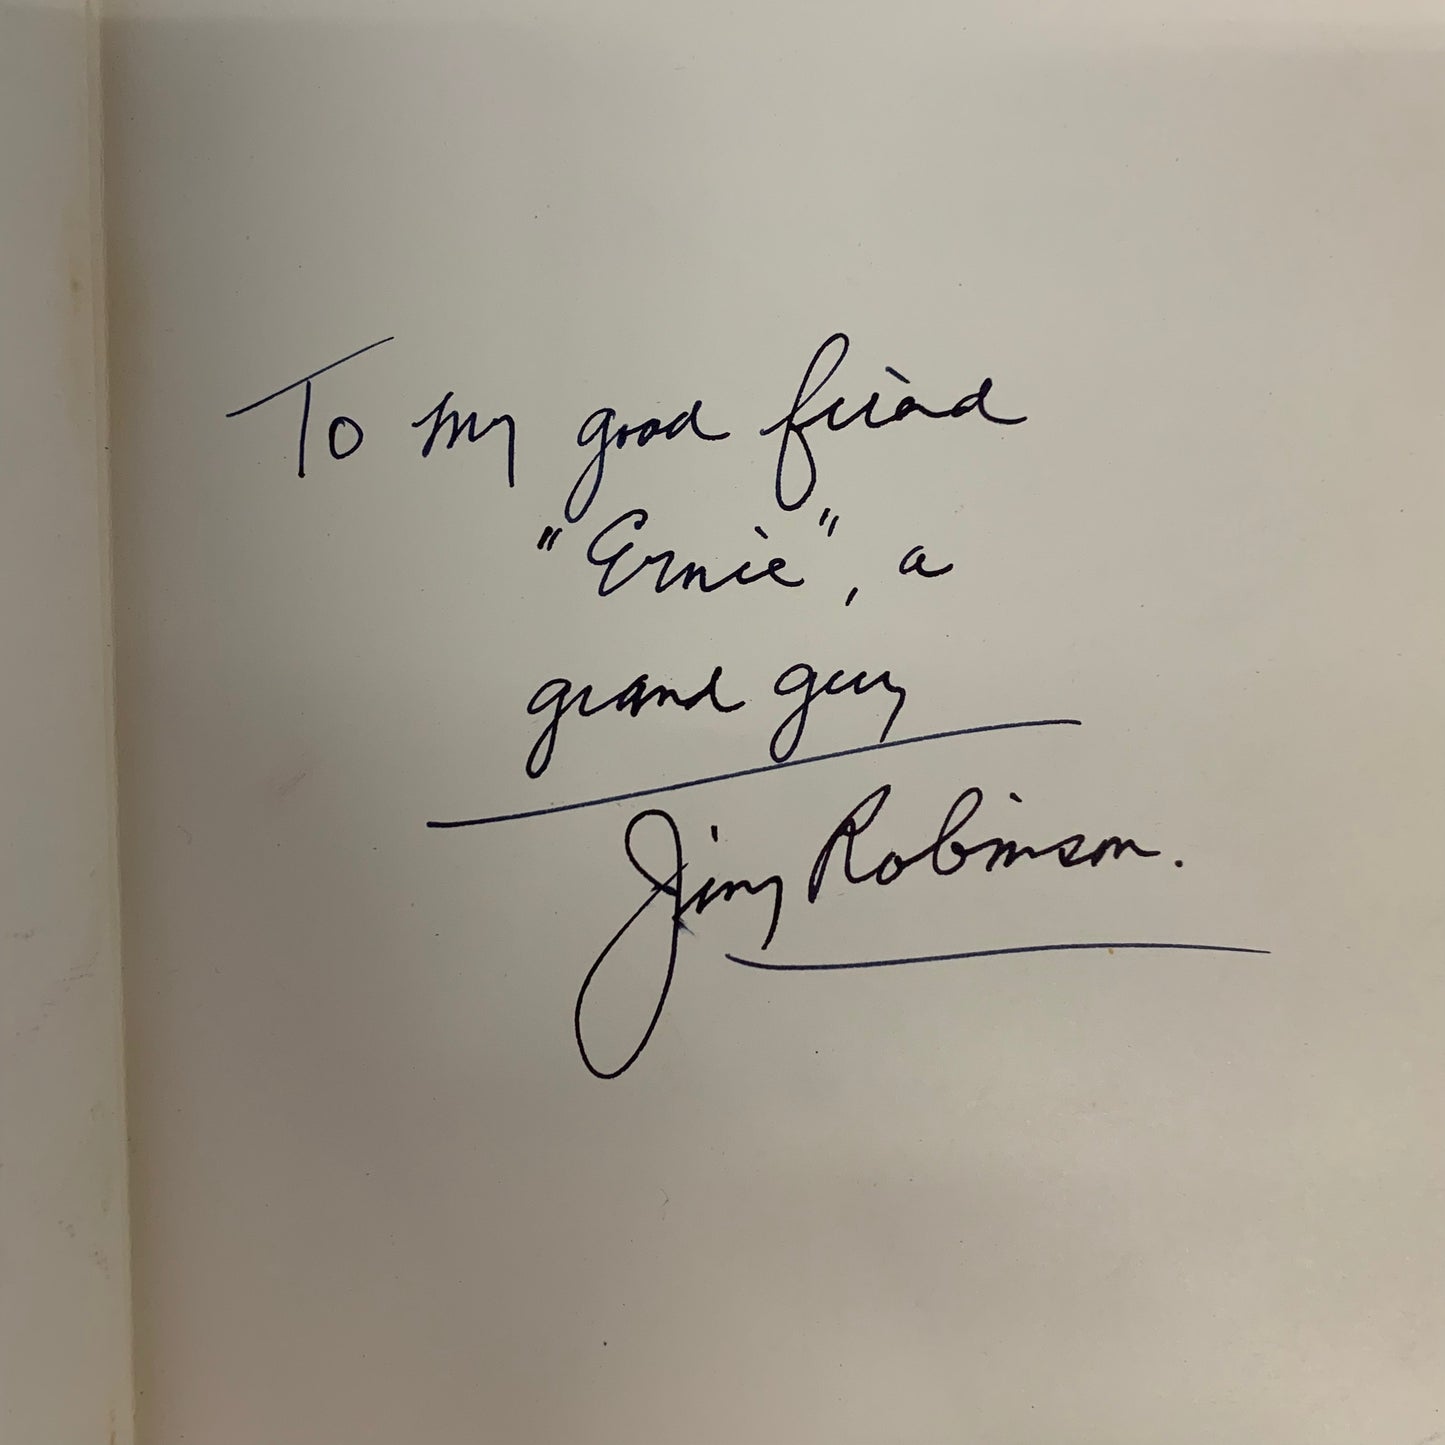 To my good friend
"Ernie", a
grand guy
Jimy Robinson.